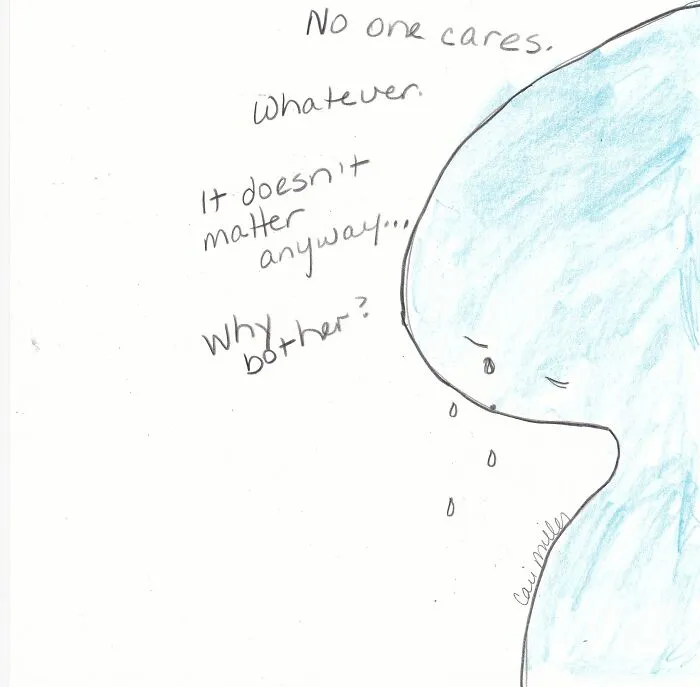 No one cares.
Whatever.
It doesn't
matter
anyway...
Why
bother?
Cari Miller